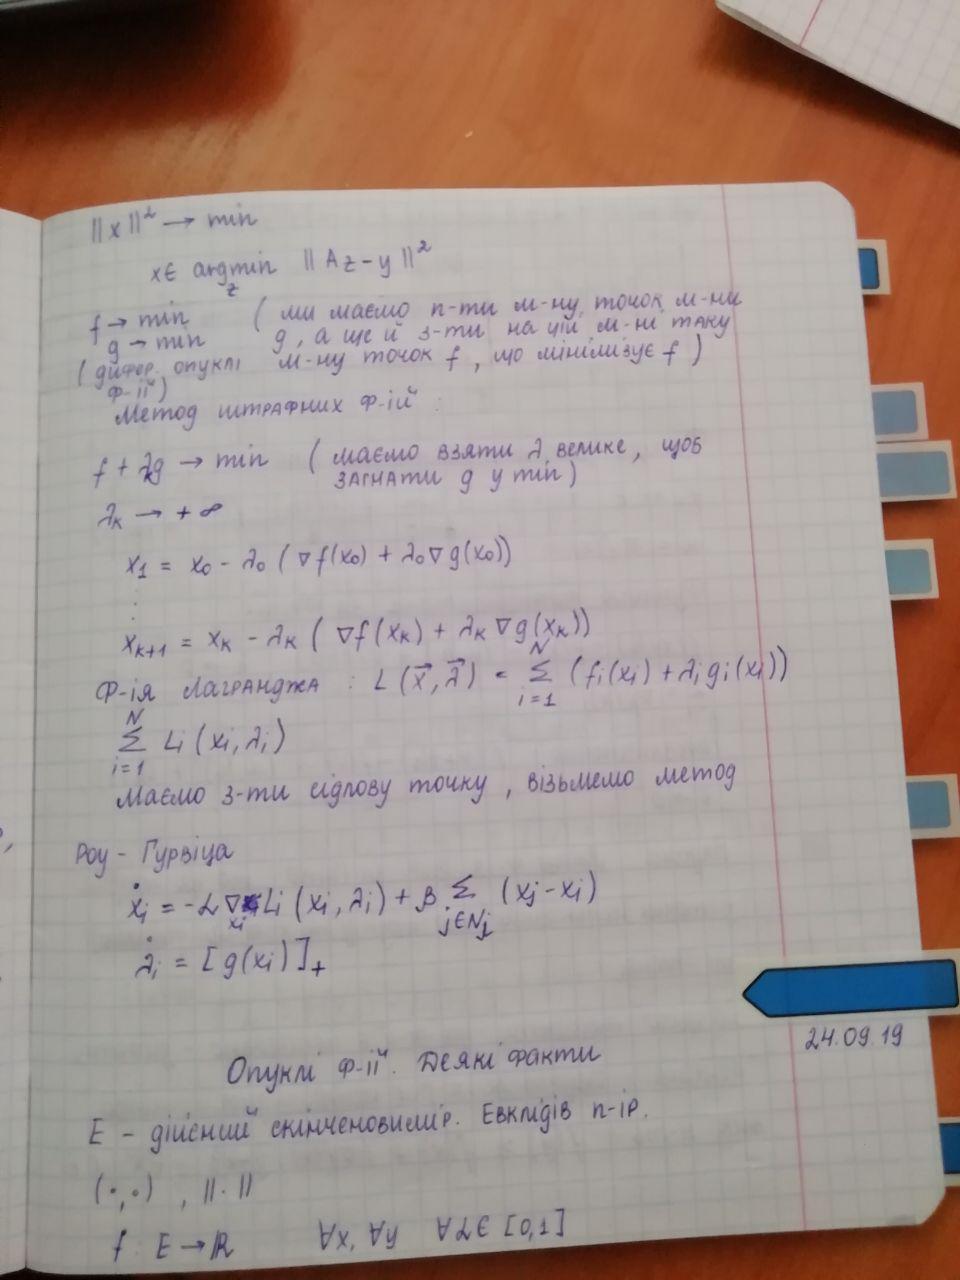 ||x||² → min
x ∈ argmin ||Az - y||²
z
f → min ( ми маємо п-ти м-ну точок м-ни
g → min g, а ще й з-ти на цій м-ні таку
( дифер. опуклі м-ну точок f, що мінімізує f )
ф-ії)
Метод штрафних ф-ій :
f + λg → min ( маємо взяти λ велике, щоб
k загнати g у min )
λk → + ∞
x1 = x0 - λ0 ( ∇f(x0) + λ0 ∇g(x0))
⋮
xk+1 = xk - λk ( ∇f(xk) + λk ∇g(xk))
Ф-ія Лагранджа : L(x⃗, λ⃗) = N∑i=1 (fi(xi) + λi gi(xi))
N∑i=1 Li (xi, λi)
Маємо з-ти сідлову точку, візьмемо метод
Роу - Гурвіца
ẋi = -α ∇xi Li (xi, λi) + β ∑j∈Nj (xj - xi)
λ̇i = [g(xi)]+
24.09.19
Опуклі ф-ії. Деякі факти
E - дійсний скінченовимір. Евклідів п-ір.
(·,·) , ||·||
f : E → ℝ ∀x, ∀y ∀α ∈ [0,1]